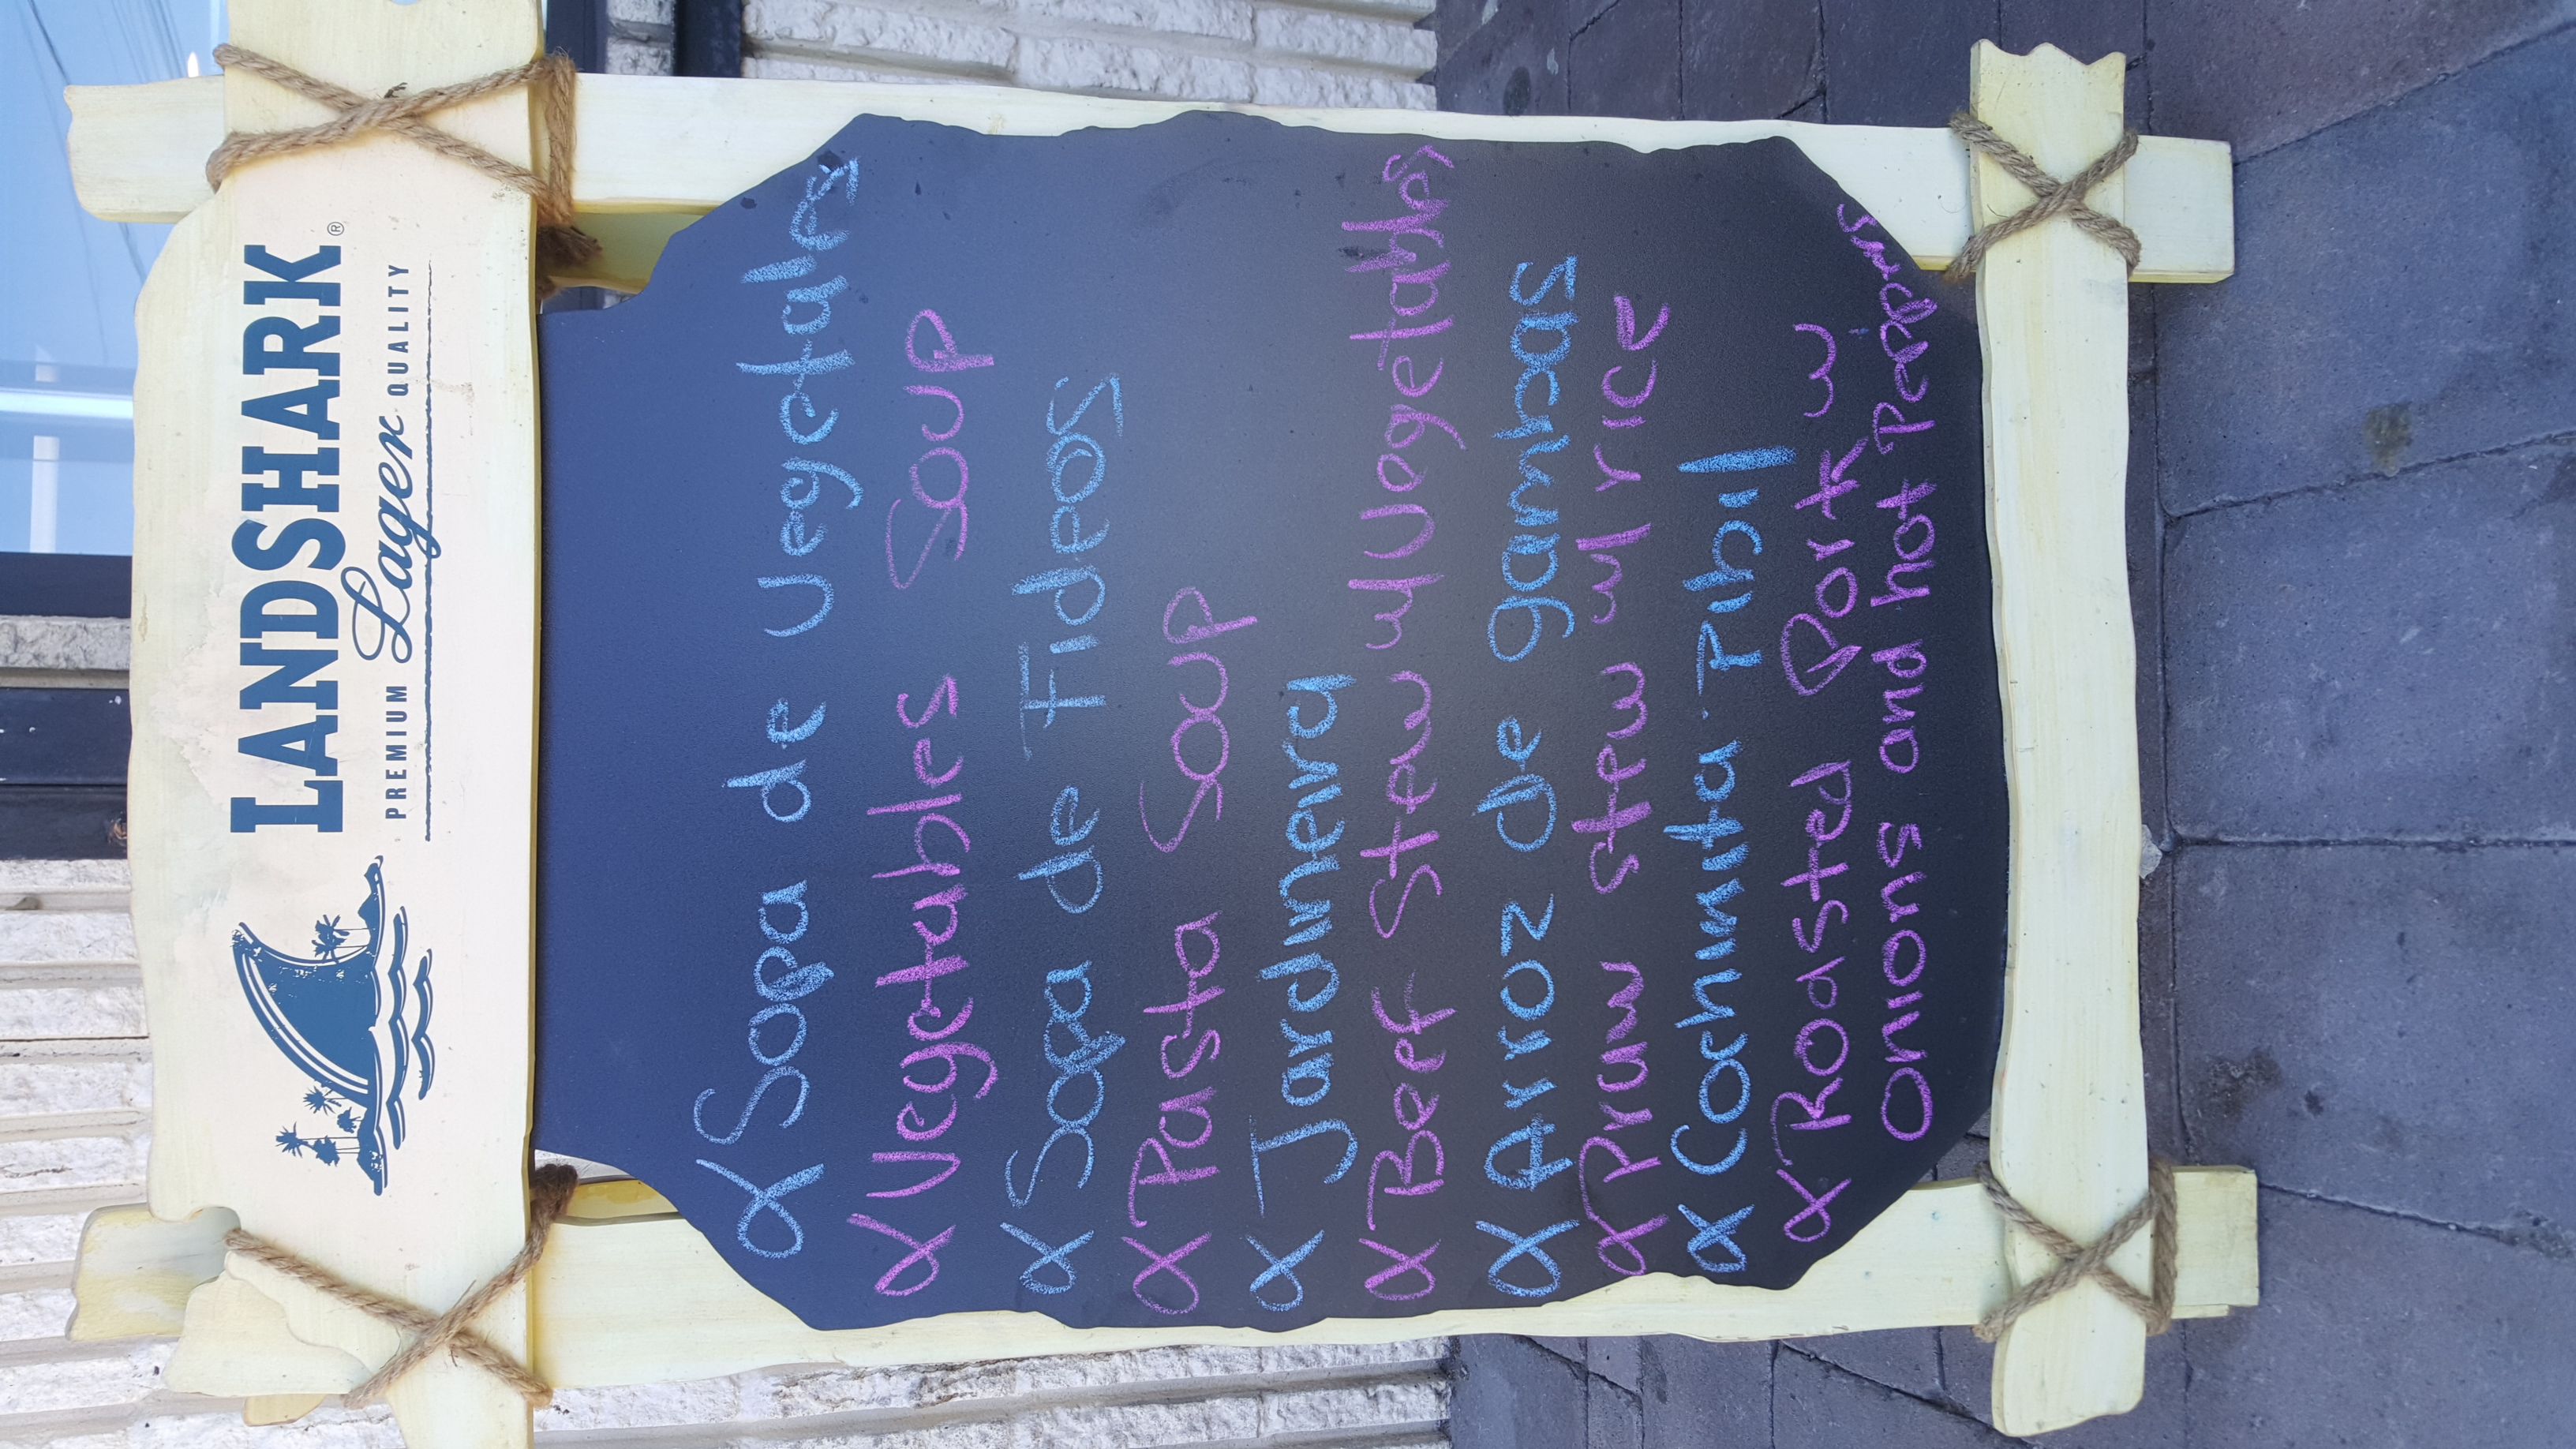 LANDSHARK®
PREMIUM Lager QUALITY
α Sopa de Vegetales
α Vegetables Soup
α Sopa de Fideos
α Pasta Soup
α Jardinera
α Beef Stew w/Vegetables
α Arroz de gambas
α Pruw stew w/ rice
α Cochinita Pibil
α Roasted Pork w
onions and hot peppers